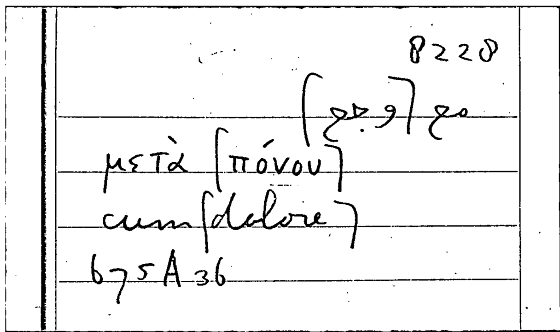 8228
μετὰ [πόνου]
cum [dolore]
675A36